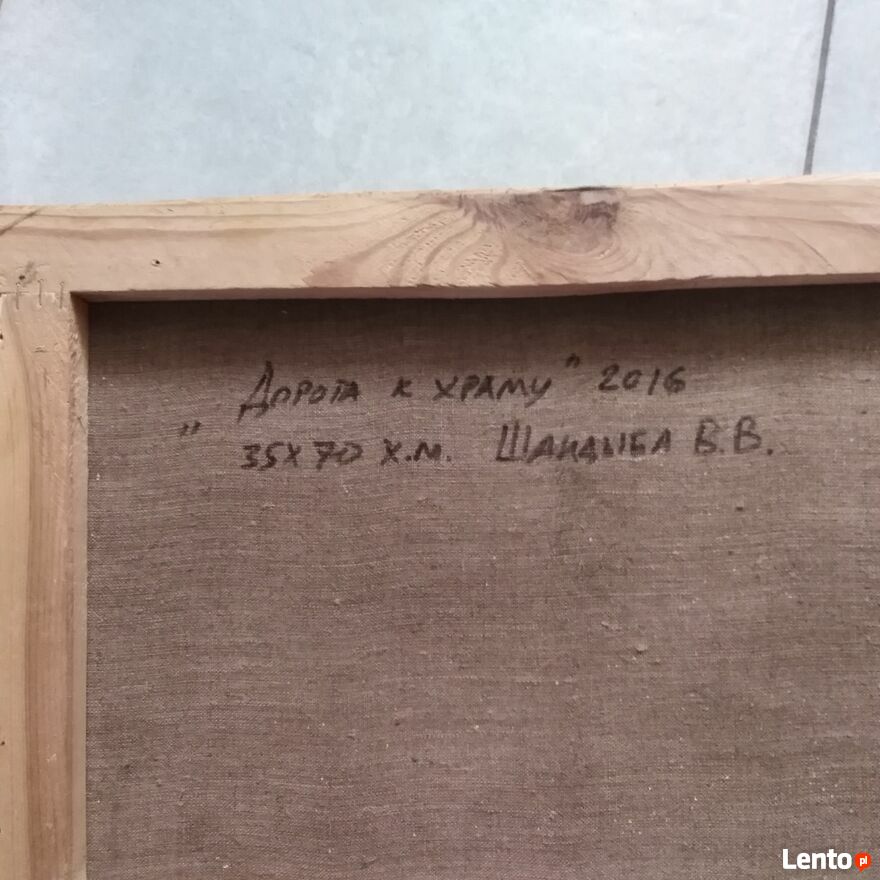 "Дорога к храму" 2016
35х70 х.м. Шандыба В.В.
Lento pl